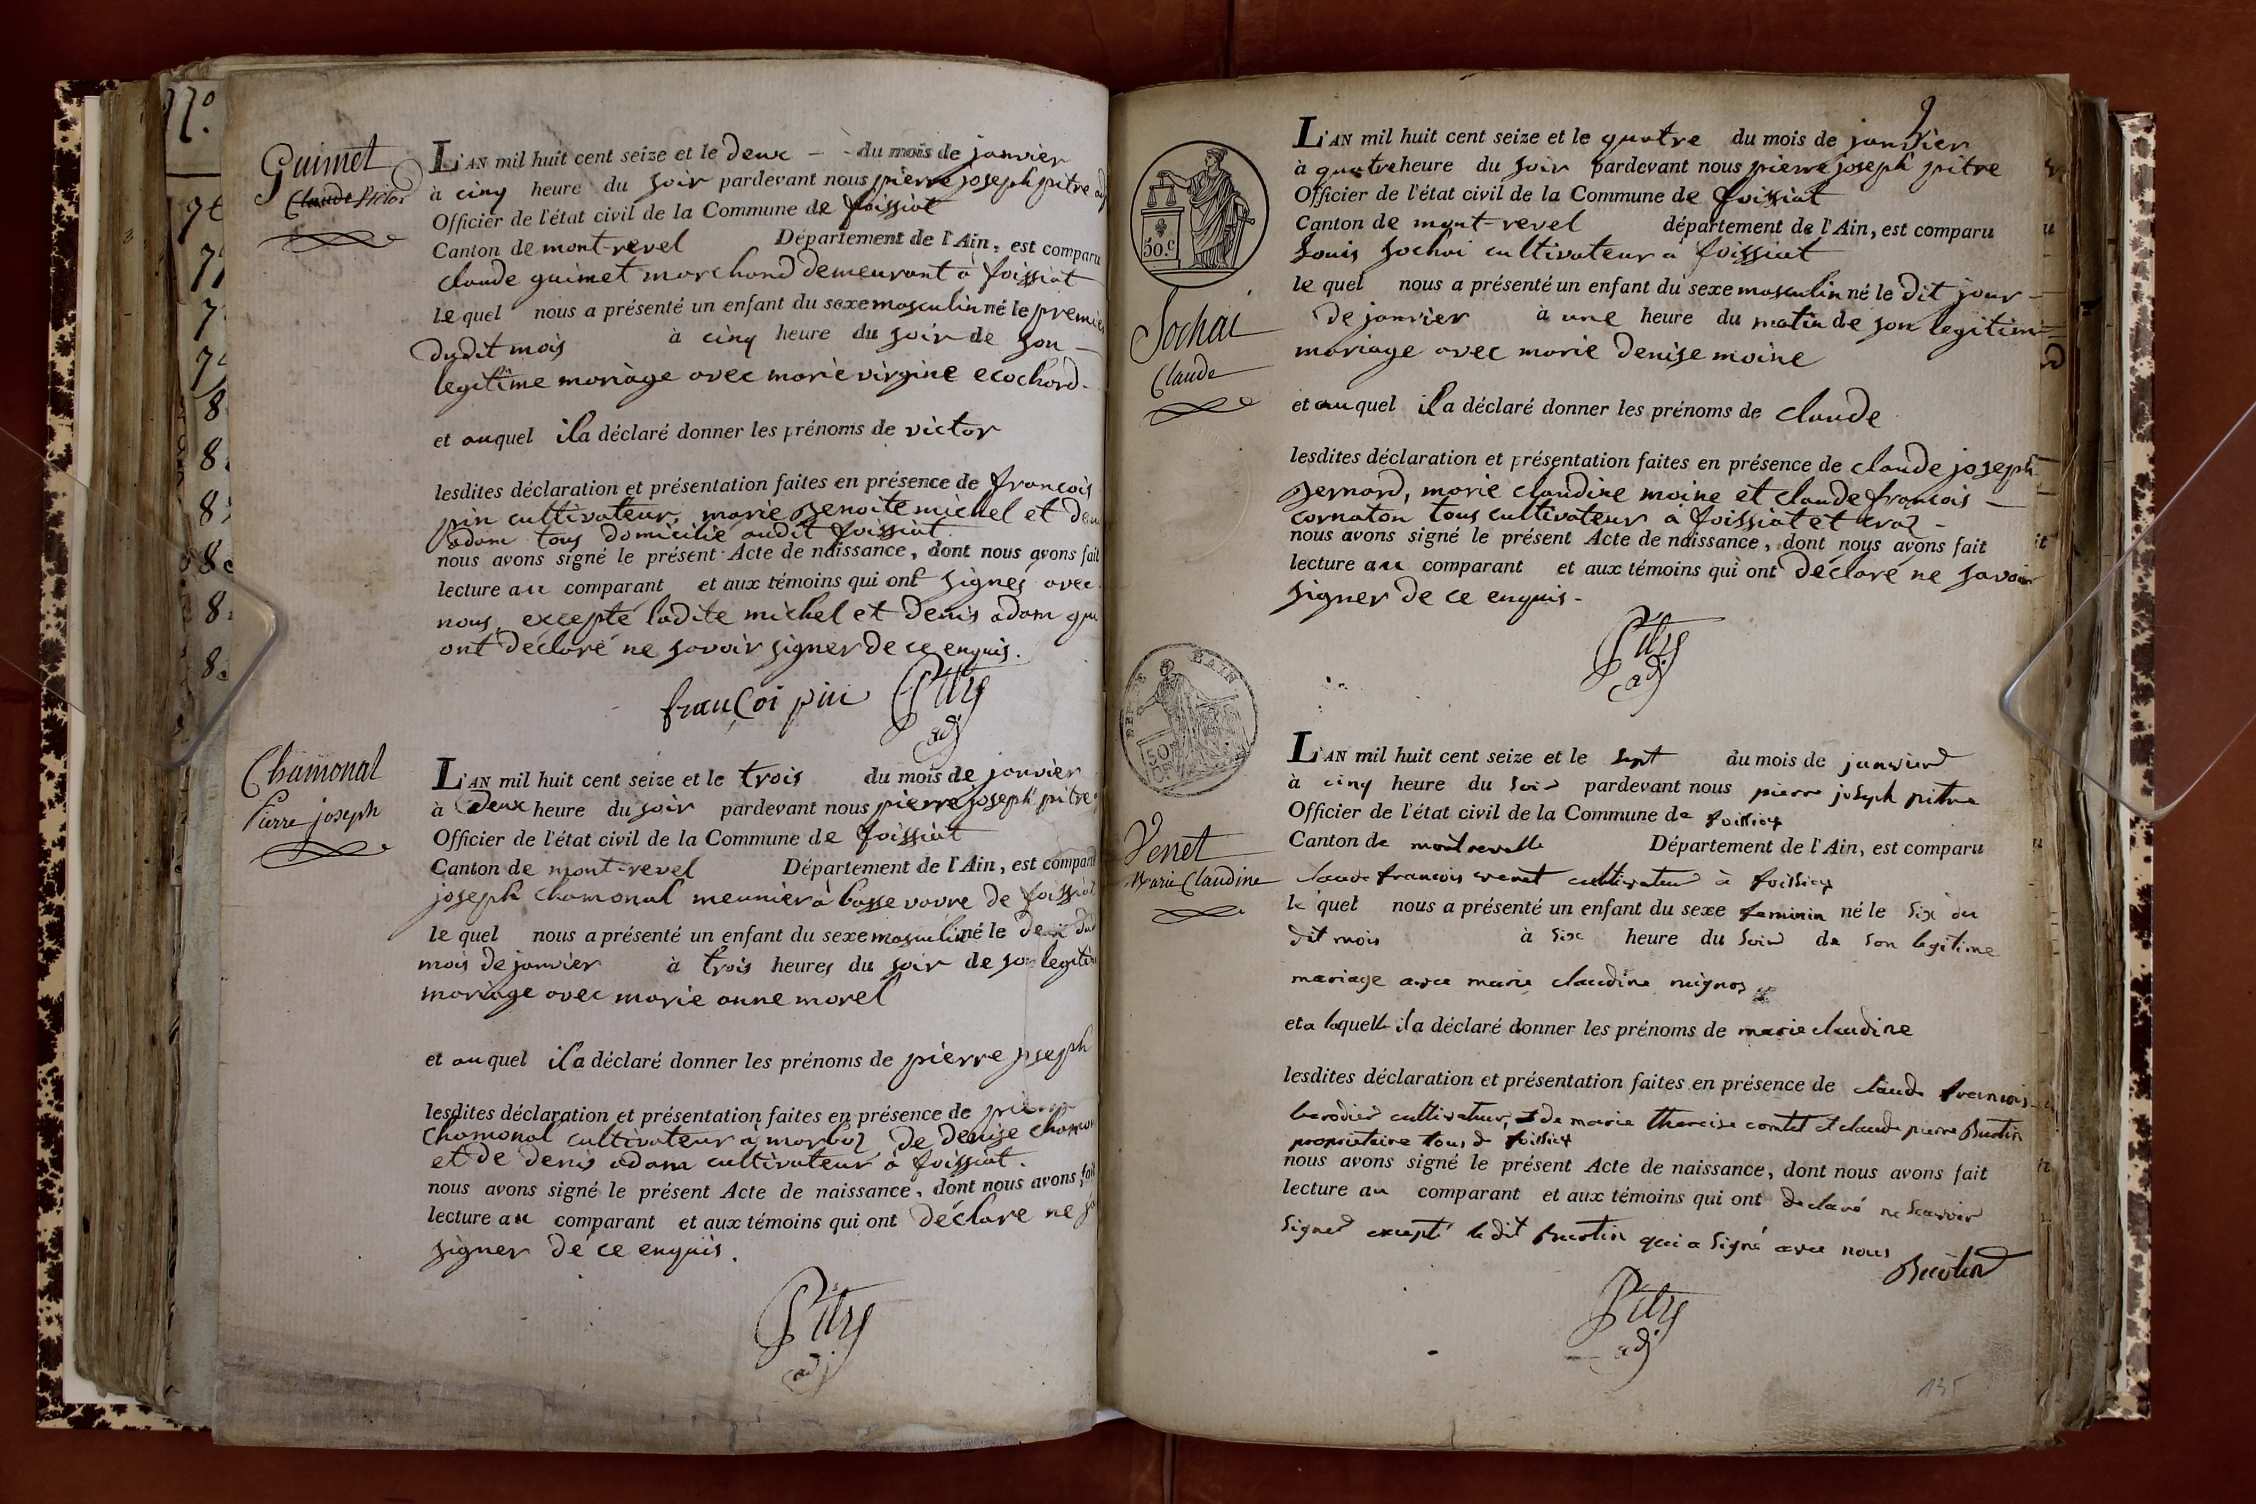 Guimet
Claude Victor
L'AN mil huit cent seize et le deux du mois de janvier
à cinq heure du soir pardevant nous pierre joseph pitre adj
Officier de l'état civil de la Commune de foissiat
Canton de mont-revel Département de l'Ain, est comparu
claude guimet marchand demeurant à foissiat
le quel nous a présenté un enfant du sexe masculin né le premier
dudit mois à cinq heure du soir de son
legitime mariage avec marie virgine ecochard
et auquel il a déclaré donner les prénoms de victor
lesdites déclaration et présentation faites en présence de francois
pin cultivateur, marie benoite michel et denis
adam tous domicilié audit foissiat
nous avons signé le présent Acte de naissance, dont nous avons fait
lecture au comparant et aux témoins qui ont signes avec
nous, excepté ladite michel et denis adam qui
ont déclaré ne savoir signer de ce enquis.
françoi pin Pitre
adj
Chamonal
Pierre joseph
L'AN mil huit cent seize et le trois du mois de janvier
à deux heure du soir pardevant nous pierre joseph pitre
Officier de l'état civil de la Commune de foissiat
Canton de mont-revel Département de l'Ain, est comparu
joseph chamonal meunier à basse vavre de foissiat
le quel nous a présenté un enfant du sexe masculin né le deux dud
mois de janvier à trois heures du soir de son legitim
mariage avec marie anne morel
et auquel il a déclaré donner les prénoms de pierre joseph
lesdites déclaration et présentation faites en présence de pierre
chamonal cultivateur à marboz de denise chamon
et de denis adam cultivateur à foissiat.
nous avons signé le présent Acte de naissance, dont nous avons fait
lecture au comparant et aux témoins qui ont déclare ne sa
signer de ce enquis.
Pitre
adj
3
50.c
Sochai
Claude
L'AN mil huit cent seize et le quatre du mois de janvier
à quatre heure du soir pardevant nous pierre joseph pitre
Officier de l'état civil de la Commune de foissiat
Canton de mont-revel département de l'Ain, est comparu
Louis sochai cultivateur à foissiat
le quel nous a présenté un enfant du sexe masculin né le dit jour
de janvier à une heure du matin de son legitim
mariage avec marie denise moine
et auquel il a déclaré donner les prénoms de claude
lesdites déclaration et présentation faites en présence de claude joseph
bernard, marie claudine moine et claude françois
cornaton tous cultivateur à foissiat et cras
nous avons signé le présent Acte de naissance, dont nous avons fait
lecture au comparant et aux témoins qui ont déclaré ne savoir
signer de ce enquis
Pitre
adj
50
Venet
Marie Claudine
L'AN mil huit cent seize et le sept du mois de janvier
à cinq heure du soir pardevant nous pierre joseph pitre
Officier de l'état civil de la Commune de foissiat
Canton de montrevelle Département de l'Ain, est comparu
claude francois venet cultivateur à foissiat
le quel nous a présenté un enfant du sexe feminin né le six du
dit mois à six heure du soir de son legitime
mariage avec marie claudine
et a laquelle il a déclaré donner les prénoms de marie claudine
lesdites déclaration et présentation faites en présence de claude francois
cultivateur, et de marie comtet et claude pierre
proprietaire tous de foissiat
nous avons signé le présent Acte de naissance, dont nous avons fait
lecture au comparant et aux témoins qui ont declaré ne scavoir
signer excepté le dit qui a signé avec nous
Pitre
adj
135